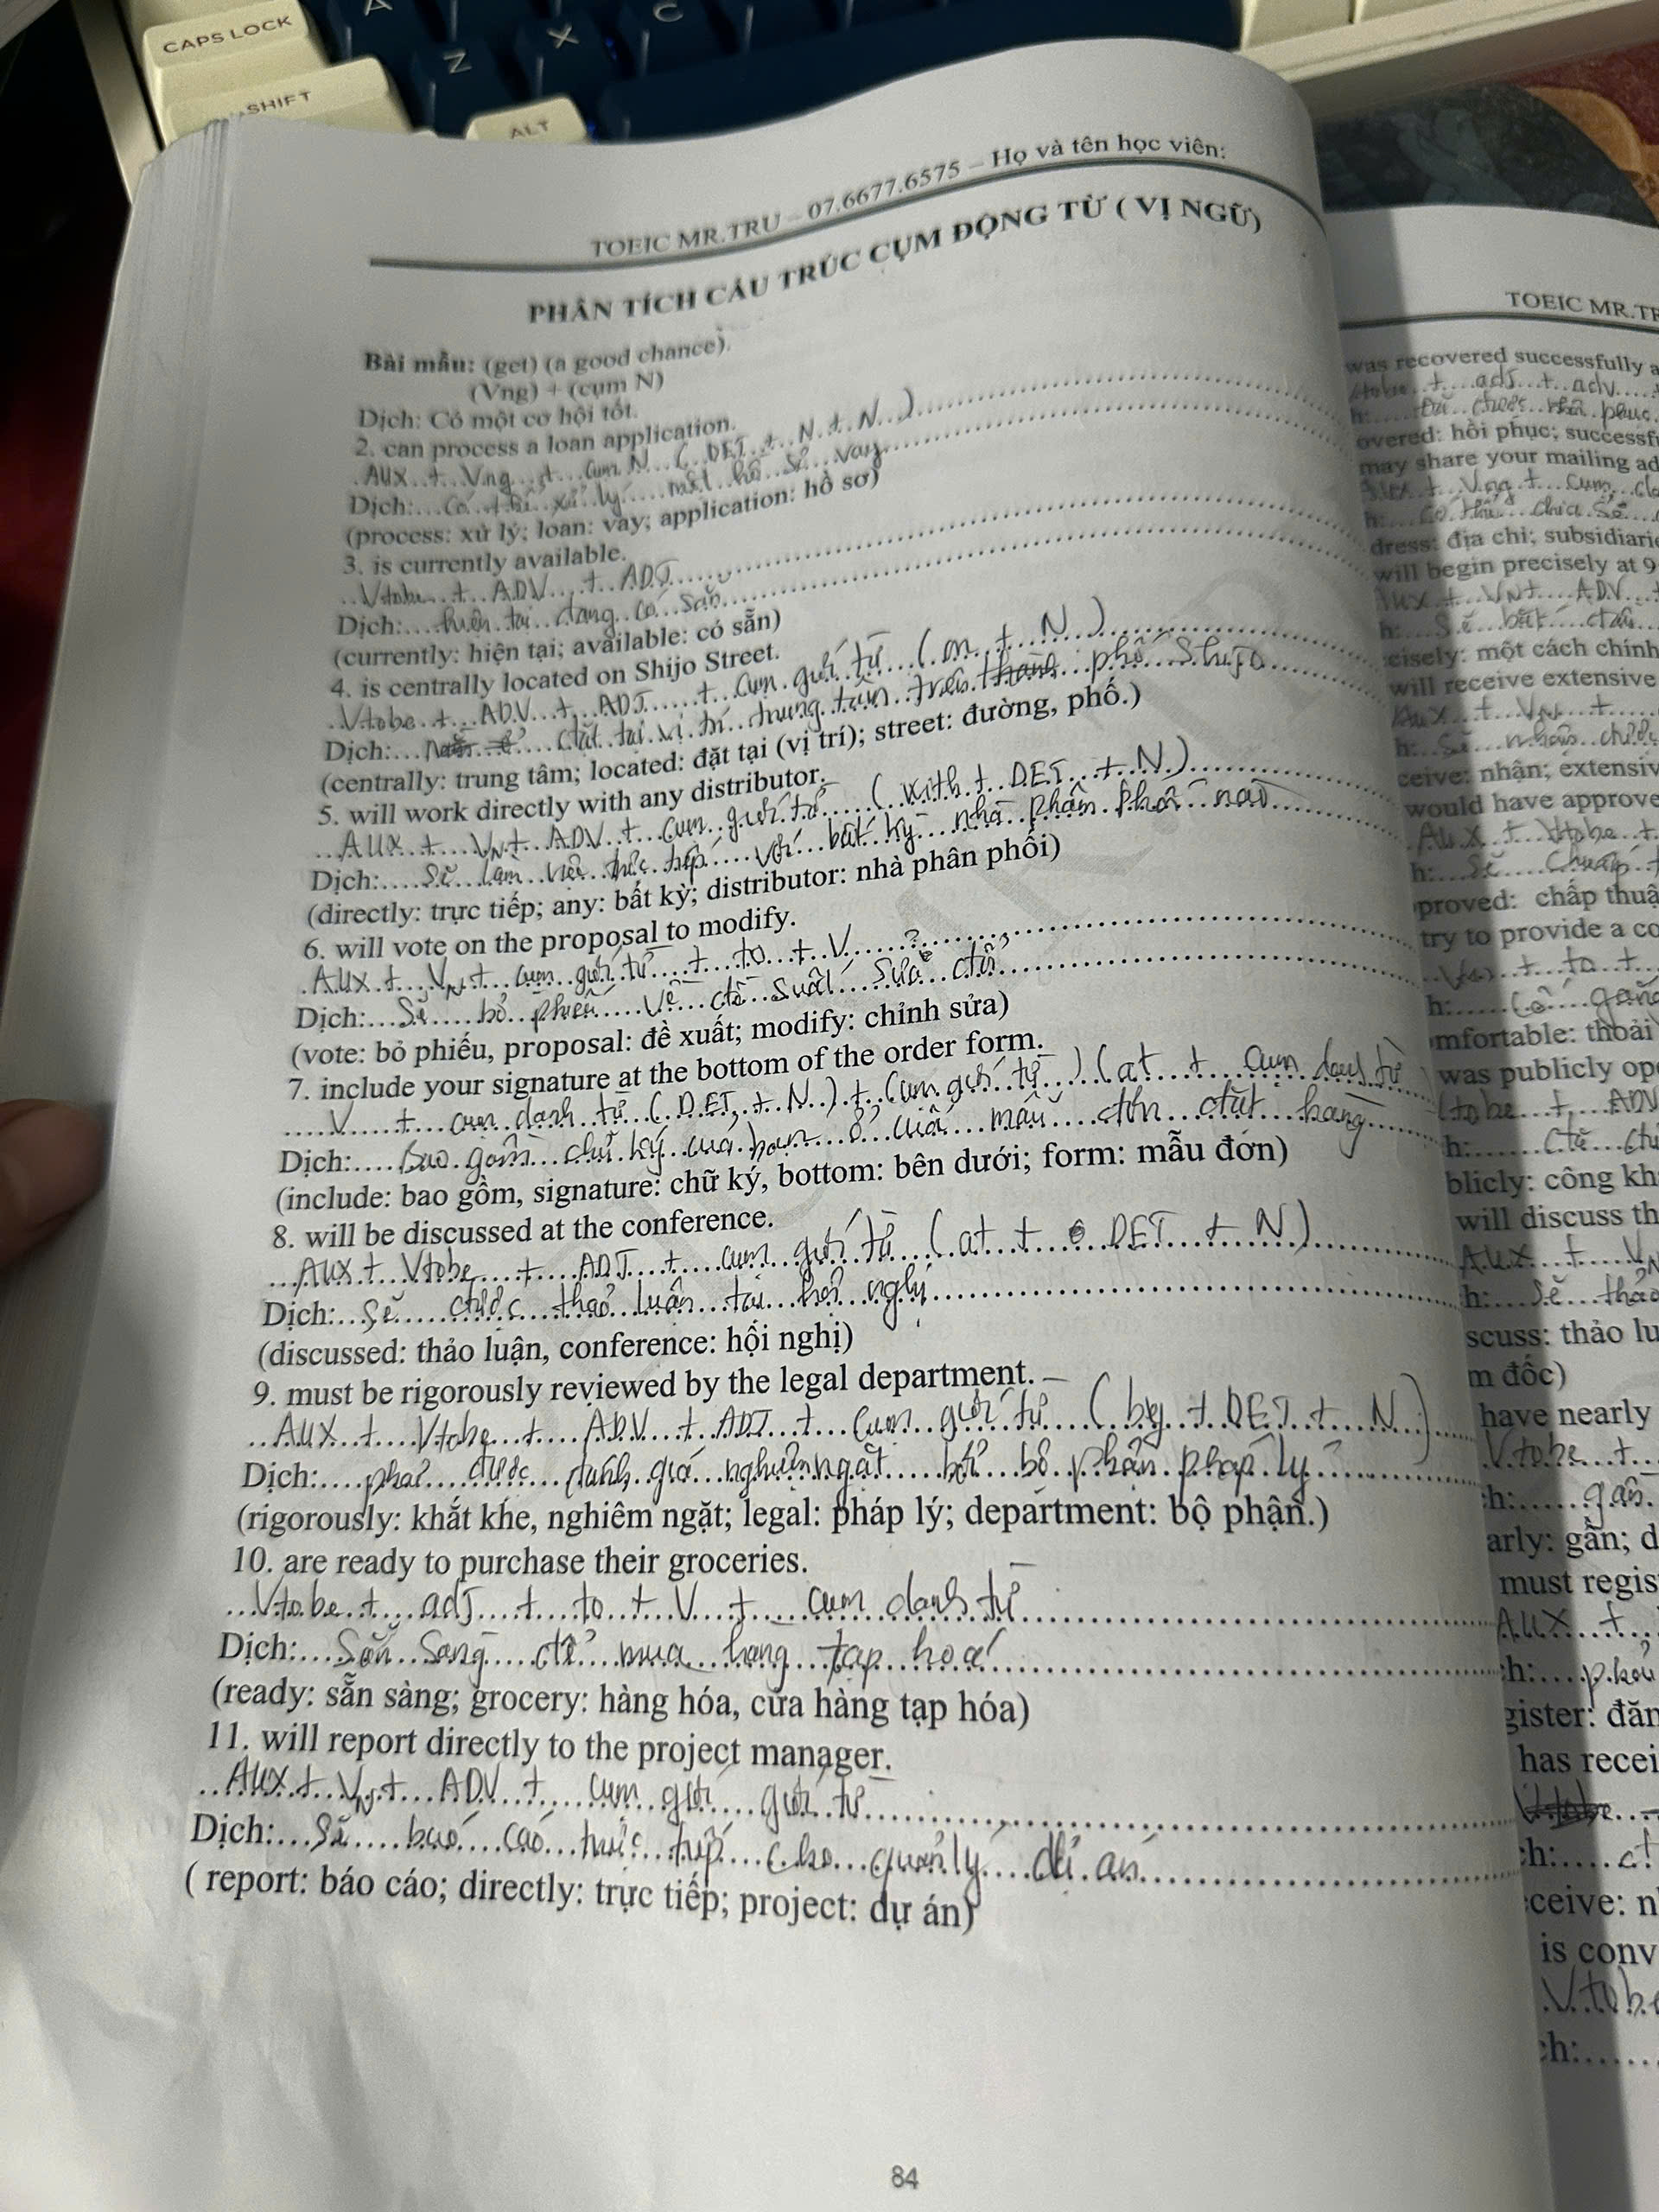 CAPS LOCK
SHIFT
ALT
A
Z
X
C
TOEIC MR.TRU – 07.6677.6575 – Họ và tên học viên:
PHÂN TÍCH CẤU TRÚC CỤM ĐỘNG TỪ ( VỊ NGỮ)
Bài mẫu: (get) (a good chance).
(Vng) + (cụm N)
Dịch: Có một cơ hội tốt.
2. can process a loan application.
AUX + Vng + cụm N ( DET + N + N )
Dịch: Có thể xử lý một hồ sơ vay
(process: xử lý; loan: vay; application: hồ sơ)
3. is currently available.
Vtobe + ADV + ADJ
Dịch: hiện tại đang có sẵn
(currently: hiện tại; available: có sẵn)
4. is centrally located on Shijo Street.
Vtobe + ADV + ADJ + cụm giới từ ( on + N )
Dịch: đặt tại vị trí trung tâm trên phố Shijo
(centrally: trung tâm; located: đặt tại (vị trí); street: đường, phố.)
5. will work directly with any distributor.
AUX + VN + ADV + cụm giới từ ( with + DET + N )
Dịch: Sẽ làm việc trực tiếp với bất kỳ nhà phân phối nào
(directly: trực tiếp; any: bất kỳ; distributor: nhà phân phối)
6. will vote on the proposal to modify.
AUX + VN + cụm giới từ + to + V ?
Dịch: Sẽ bỏ phiếu về đề suất sửa đổi
(vote: bỏ phiếu, proposal: đề xuất; modify: chỉnh sửa)
7. include your signature at the bottom of the order form.
V + cụm danh từ ( DET + N ) + (cụm giới từ ) ( at + cụm danh từ
Dịch: bao gồm chữ ký của bạn ở cuối mẫu đơn đặt hàng
(include: bao gồm, signature: chữ ký, bottom: bên dưới; form: mẫu đơn)
8. will be discussed at the conference.
AUX + Vtobe + ADJ + cụm giới từ ( at + DET + N )
Dịch: Sẽ được thảo luận tại hội nghị
(discussed: thảo luận, conference: hội nghị)
9. must be rigorously reviewed by the legal department.
AUX + Vtobe + ADV + ADJ + cụm giới từ ( by + DET + N )
Dịch: phải được đánh giá nghiêm ngặt bởi bộ phận pháp lý
(rigorously: khắt khe, nghiêm ngặt; legal: pháp lý; department: bộ phận.)
10. are ready to purchase their groceries.
Vtobe + adj + to + V + cụm danh từ
Dịch: Sẵn sàng để mua hàng tạp hoá
(ready: sẵn sàng; grocery: hàng hóa, cửa hàng tạp hóa)
11. will report directly to the project manager.
AUX + VN + ADV + cụm giới giới từ
Dịch: Sẽ báo cáo trực tiếp cho quản lý dự án
( report: báo cáo; directly: trực tiếp; project: dự án)
84
TOEIC MR.TR
was recovered successfully a
Vtobe + adj + adv
overed: hồi phục; successfu
may share your mailing ad
Aux + Vng + cụm
có thể chia sẻ
dress: địa chỉ; subsidiarie
will begin precisely at 9
AUX + VN + ADV +
h: Sẽ bắt đầu
cisely: một cách chính
will receive extensive
Aux + VN +
h: Sẽ nhận
ceive: nhận; extensiv
would have approve
AUX + Vtobe +
h: Sẽ
proved: chấp thuậ
try to provide a co
+ to +
h: Cố gắng
mfortable: thoải
was publicly op
Vtobe + ADV
h:
blicly: công kh
will discuss th
AUX + VN
h: Sẽ thảo
scuss: thảo lu
m đốc)
have nearly
Vtobe +
h: gần
arly: gần; d
must regis
AUX +
h: phải
gister: đăn
has recei
ch:
ceive: n
is conv
Vtobe
ch: